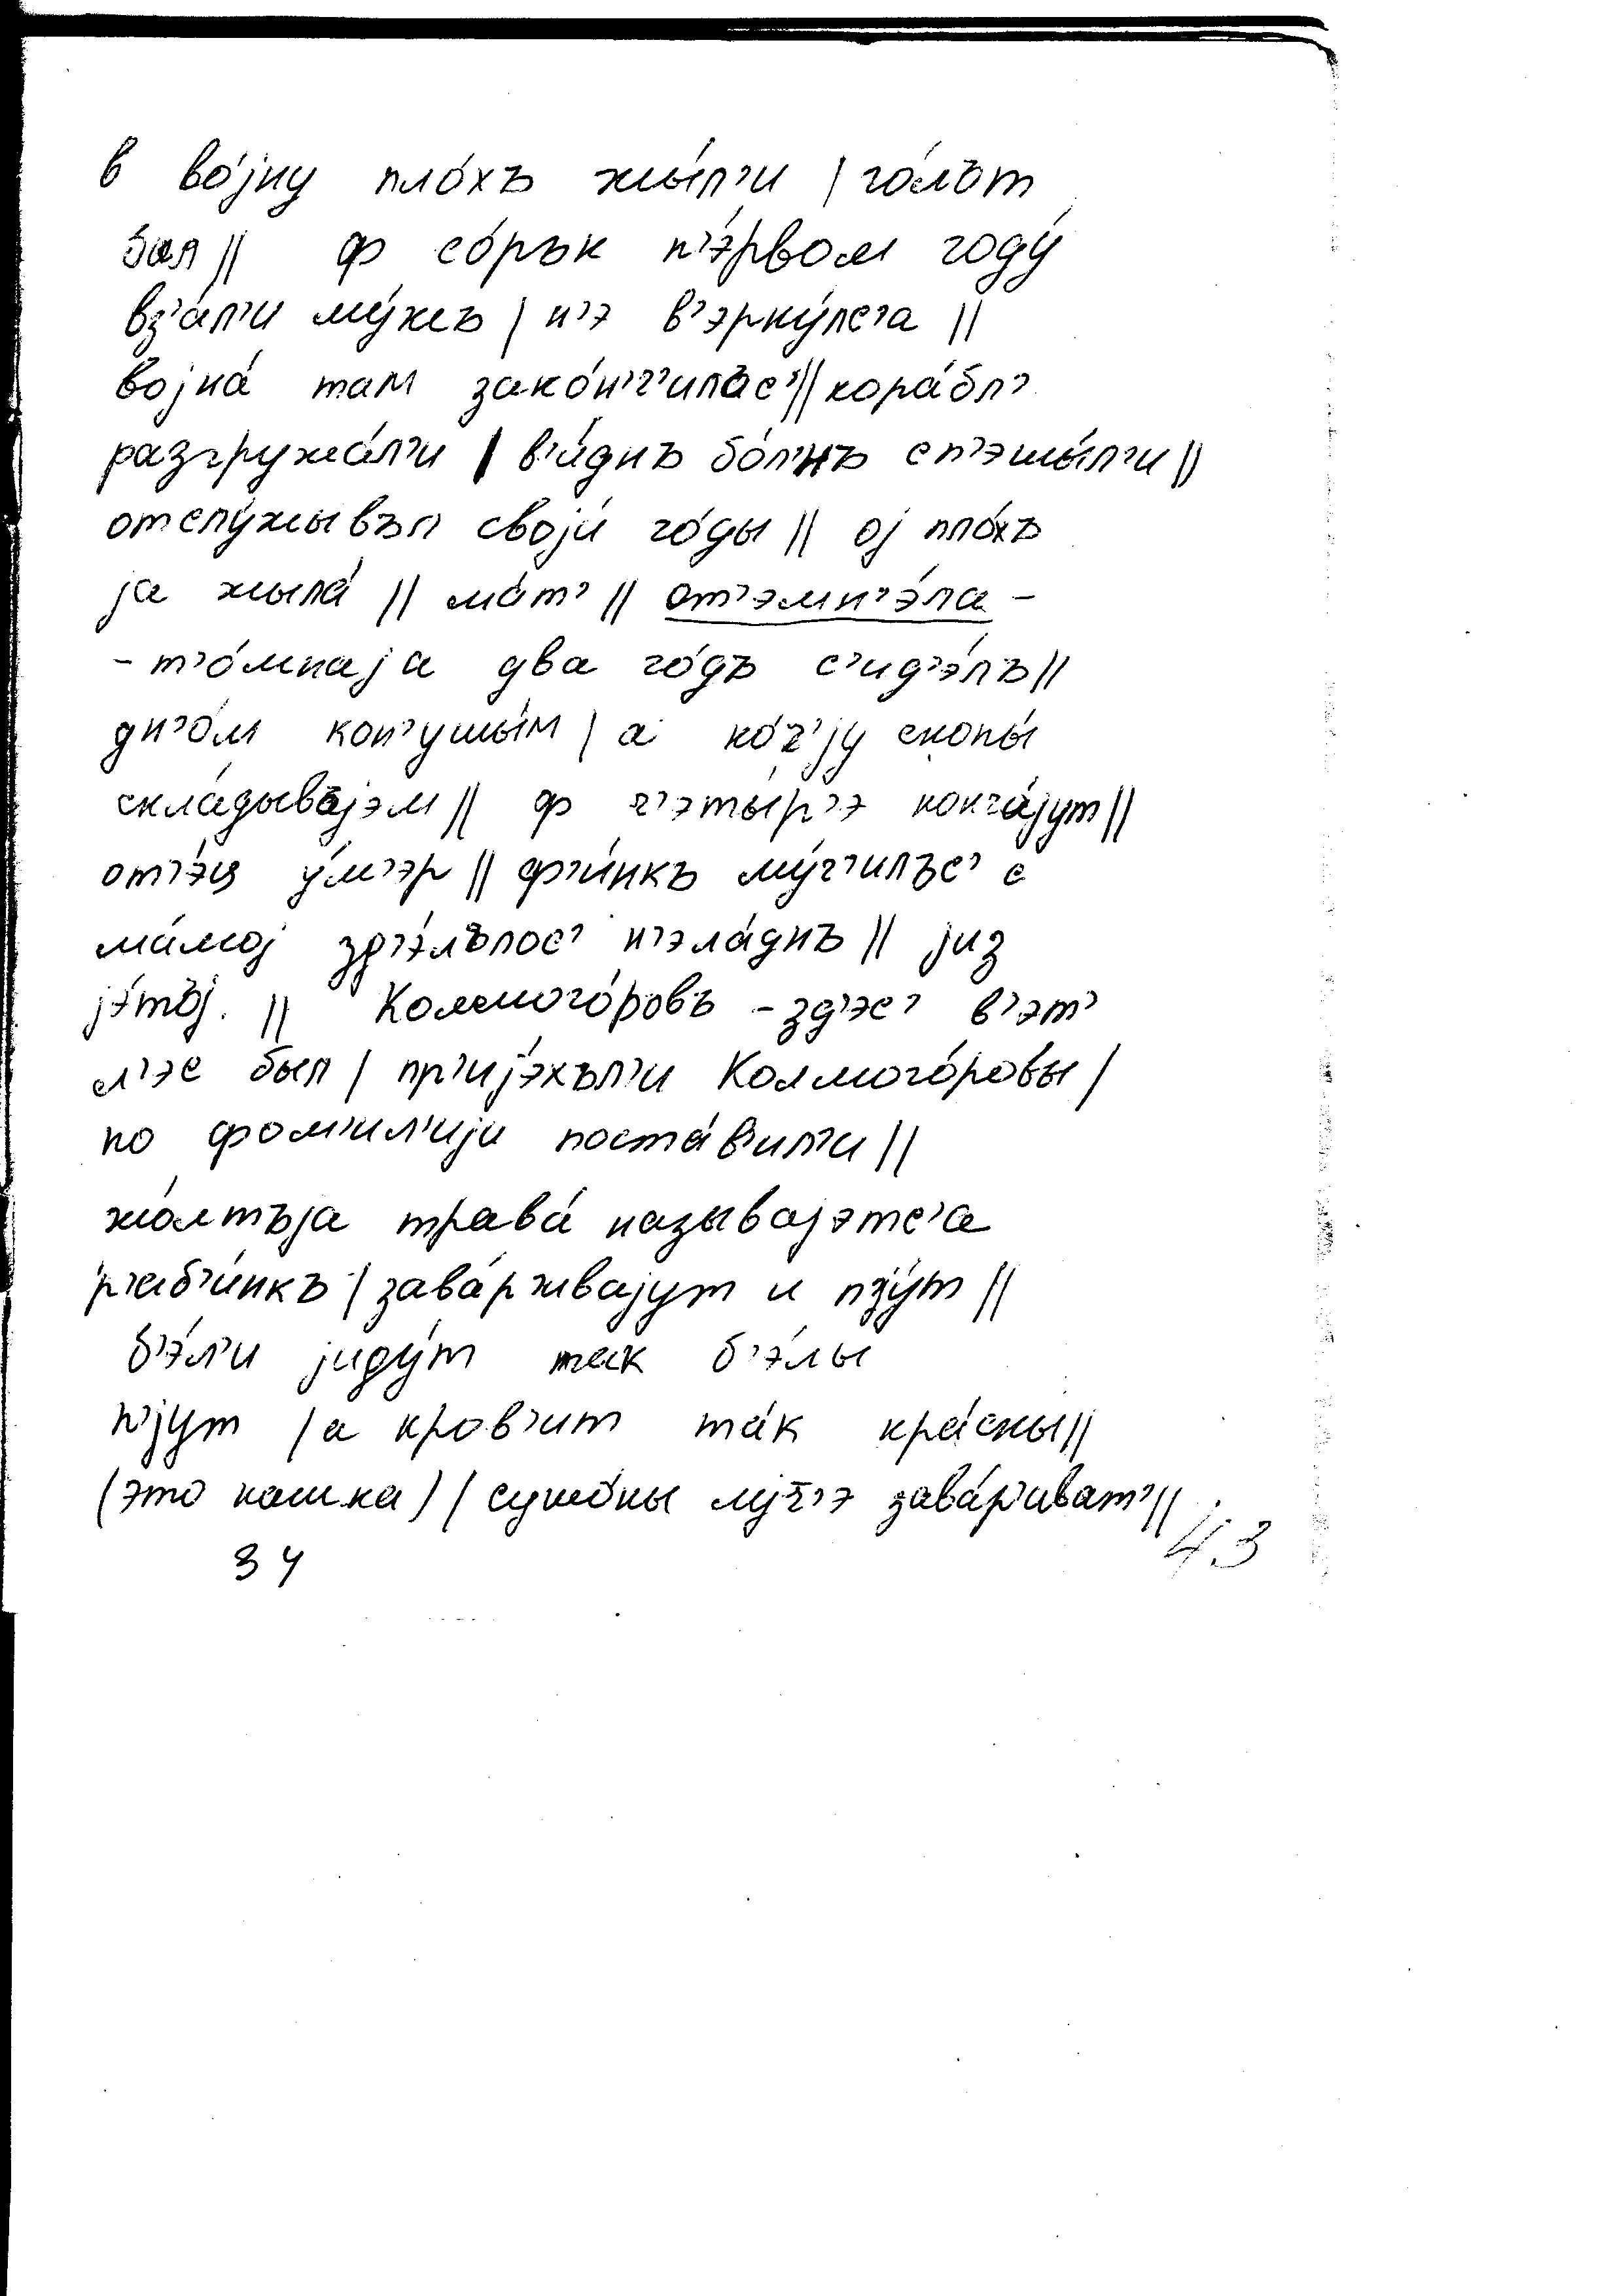 в во́јну пло́хъ жы́л'и | го́лът
был || ф со́рък п'э́рвом году́
вз'а́л'и му́жъ | н'э в'эрну́лс'а ||
војна́ там зако́н'ч'илас' || кора́бл'
разгружа́л'и | в'и́днъ бо́л'нъ сп'эшы́л'и ||
отслу́жывъл свој́и го́ды || ој пло́хъ
ја жыла́ || мат' || от'эмн'э́ла -
- т'о́мнаја два го́дъ с'ид'э́лъ ||
дн'о́м кон'ушы́м | а но́ч'ју снопы́
скла́дывајэм || ф ч'эты́р'э конча́јут ||
от'э́ц у́м'эр || ф'и́нкъ му́ч'илъс' с
ма́мој зд'э́лълос' н'эла́днъ || јиз
јэ́тъј. || Колмого́ровъ - зд'эс' в'эт'
л'эс был | пр'ијэ́хъл'и Колмого́ровы |
по фам'ил'ији поста́в'ил'и ||
жо́лтъја трава́ называјэтс'а
р'аб'и́нкъ | зава́рживајут и пjу́т ||
б'э́л'и јиду́т так б'э́лы
п'јут | а кров'ит та́к кра́сны ||
(это кашка) | сушо́ны лу́ч'э зава́р'иват' ||
34
43